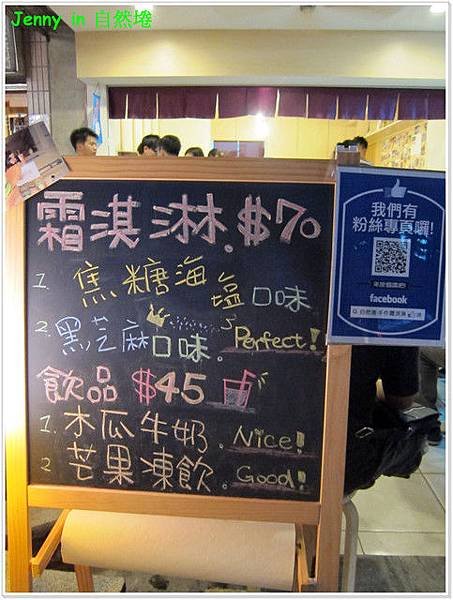 Jenny in 自然捲
霜淇淋.$70
1. 焦糖海塩口味
2. 黑芝麻口味. Perfect!
飲品 $45
1. 木瓜牛奶. Nice!
2 芒果凍飲。Good!
我們有
粉絲專頁囉!
facebook